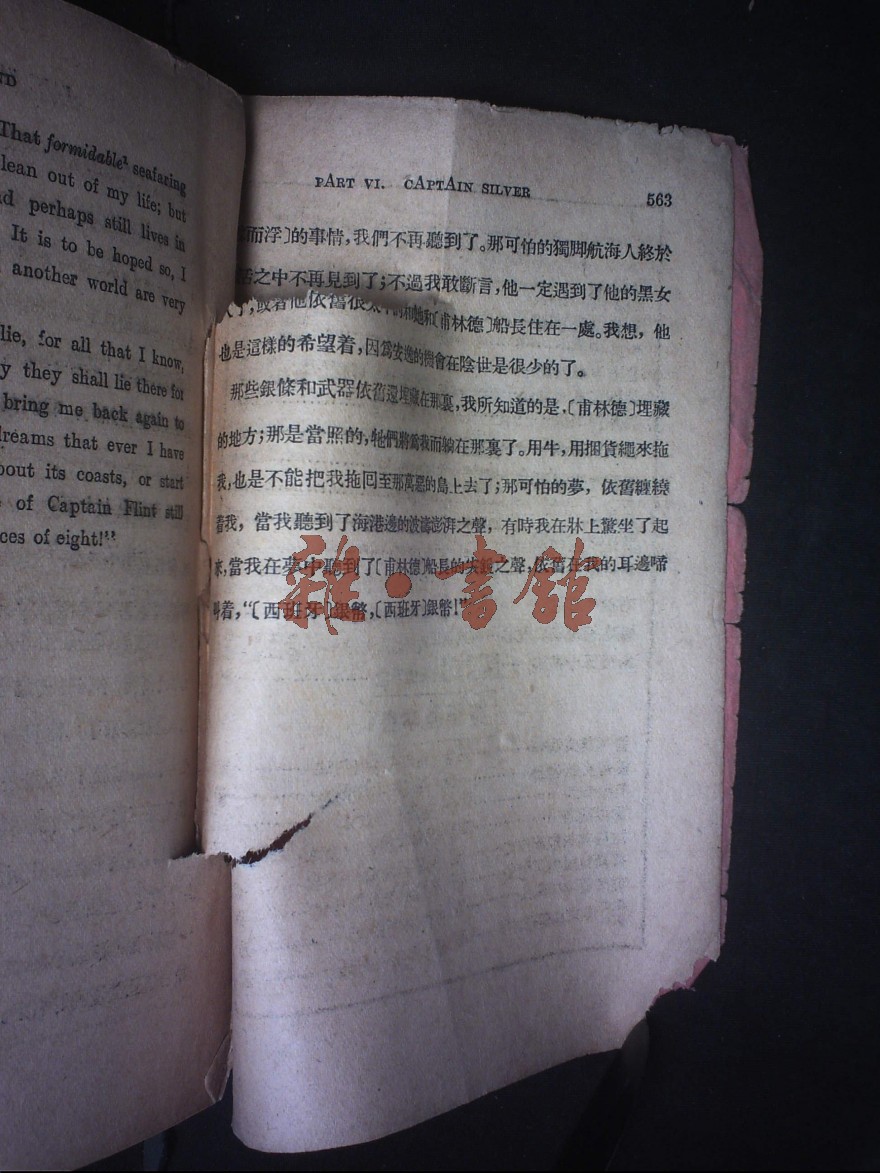 ND
That formidable¹ seafaring
lean out of my life; but
d perhaps still lives in
It is to be hoped so, I
another world are very
lie, for all that I know,
y they shall lie there for
bring me back again to
dreams that ever I have
bout its coasts, or start
of Captain Flint still
ces of eight!"
PART VI. CAPTAIN SILVER
563
而浮〕的事情，我們不再聽到了。那可怕的獨脚航海人終於
之中不再見到了；不過我敢斷言，他一定遇到了他的黑女
人了；或者他依舊很和她和〔甫林德〕船長住在一處。我想，他
也是這樣的希望着，因爲安逸的機會在陰世是很少的了。
那些銀條和武器依舊還埋藏在那裏，我所知道的是，〔甫林德〕埋藏
的地方；那是當照的，牠們將爲我而躺在那裏了。用牛，用捆貨繩來拖
我，也是不能把我拖回至那萬惡的島上去了；那可怕的夢，依舊纏繞
着我，當我聽到了海港邊的波濤澎湃之聲，有時我在牀上驚坐了起
來，當我在夢中聽到了〔甫林德〕船長的之聲，依舊在我的耳邊啼
叫着，“〔西班牙〕銀幣，〔西班牙〕銀幣！”
雜·書館